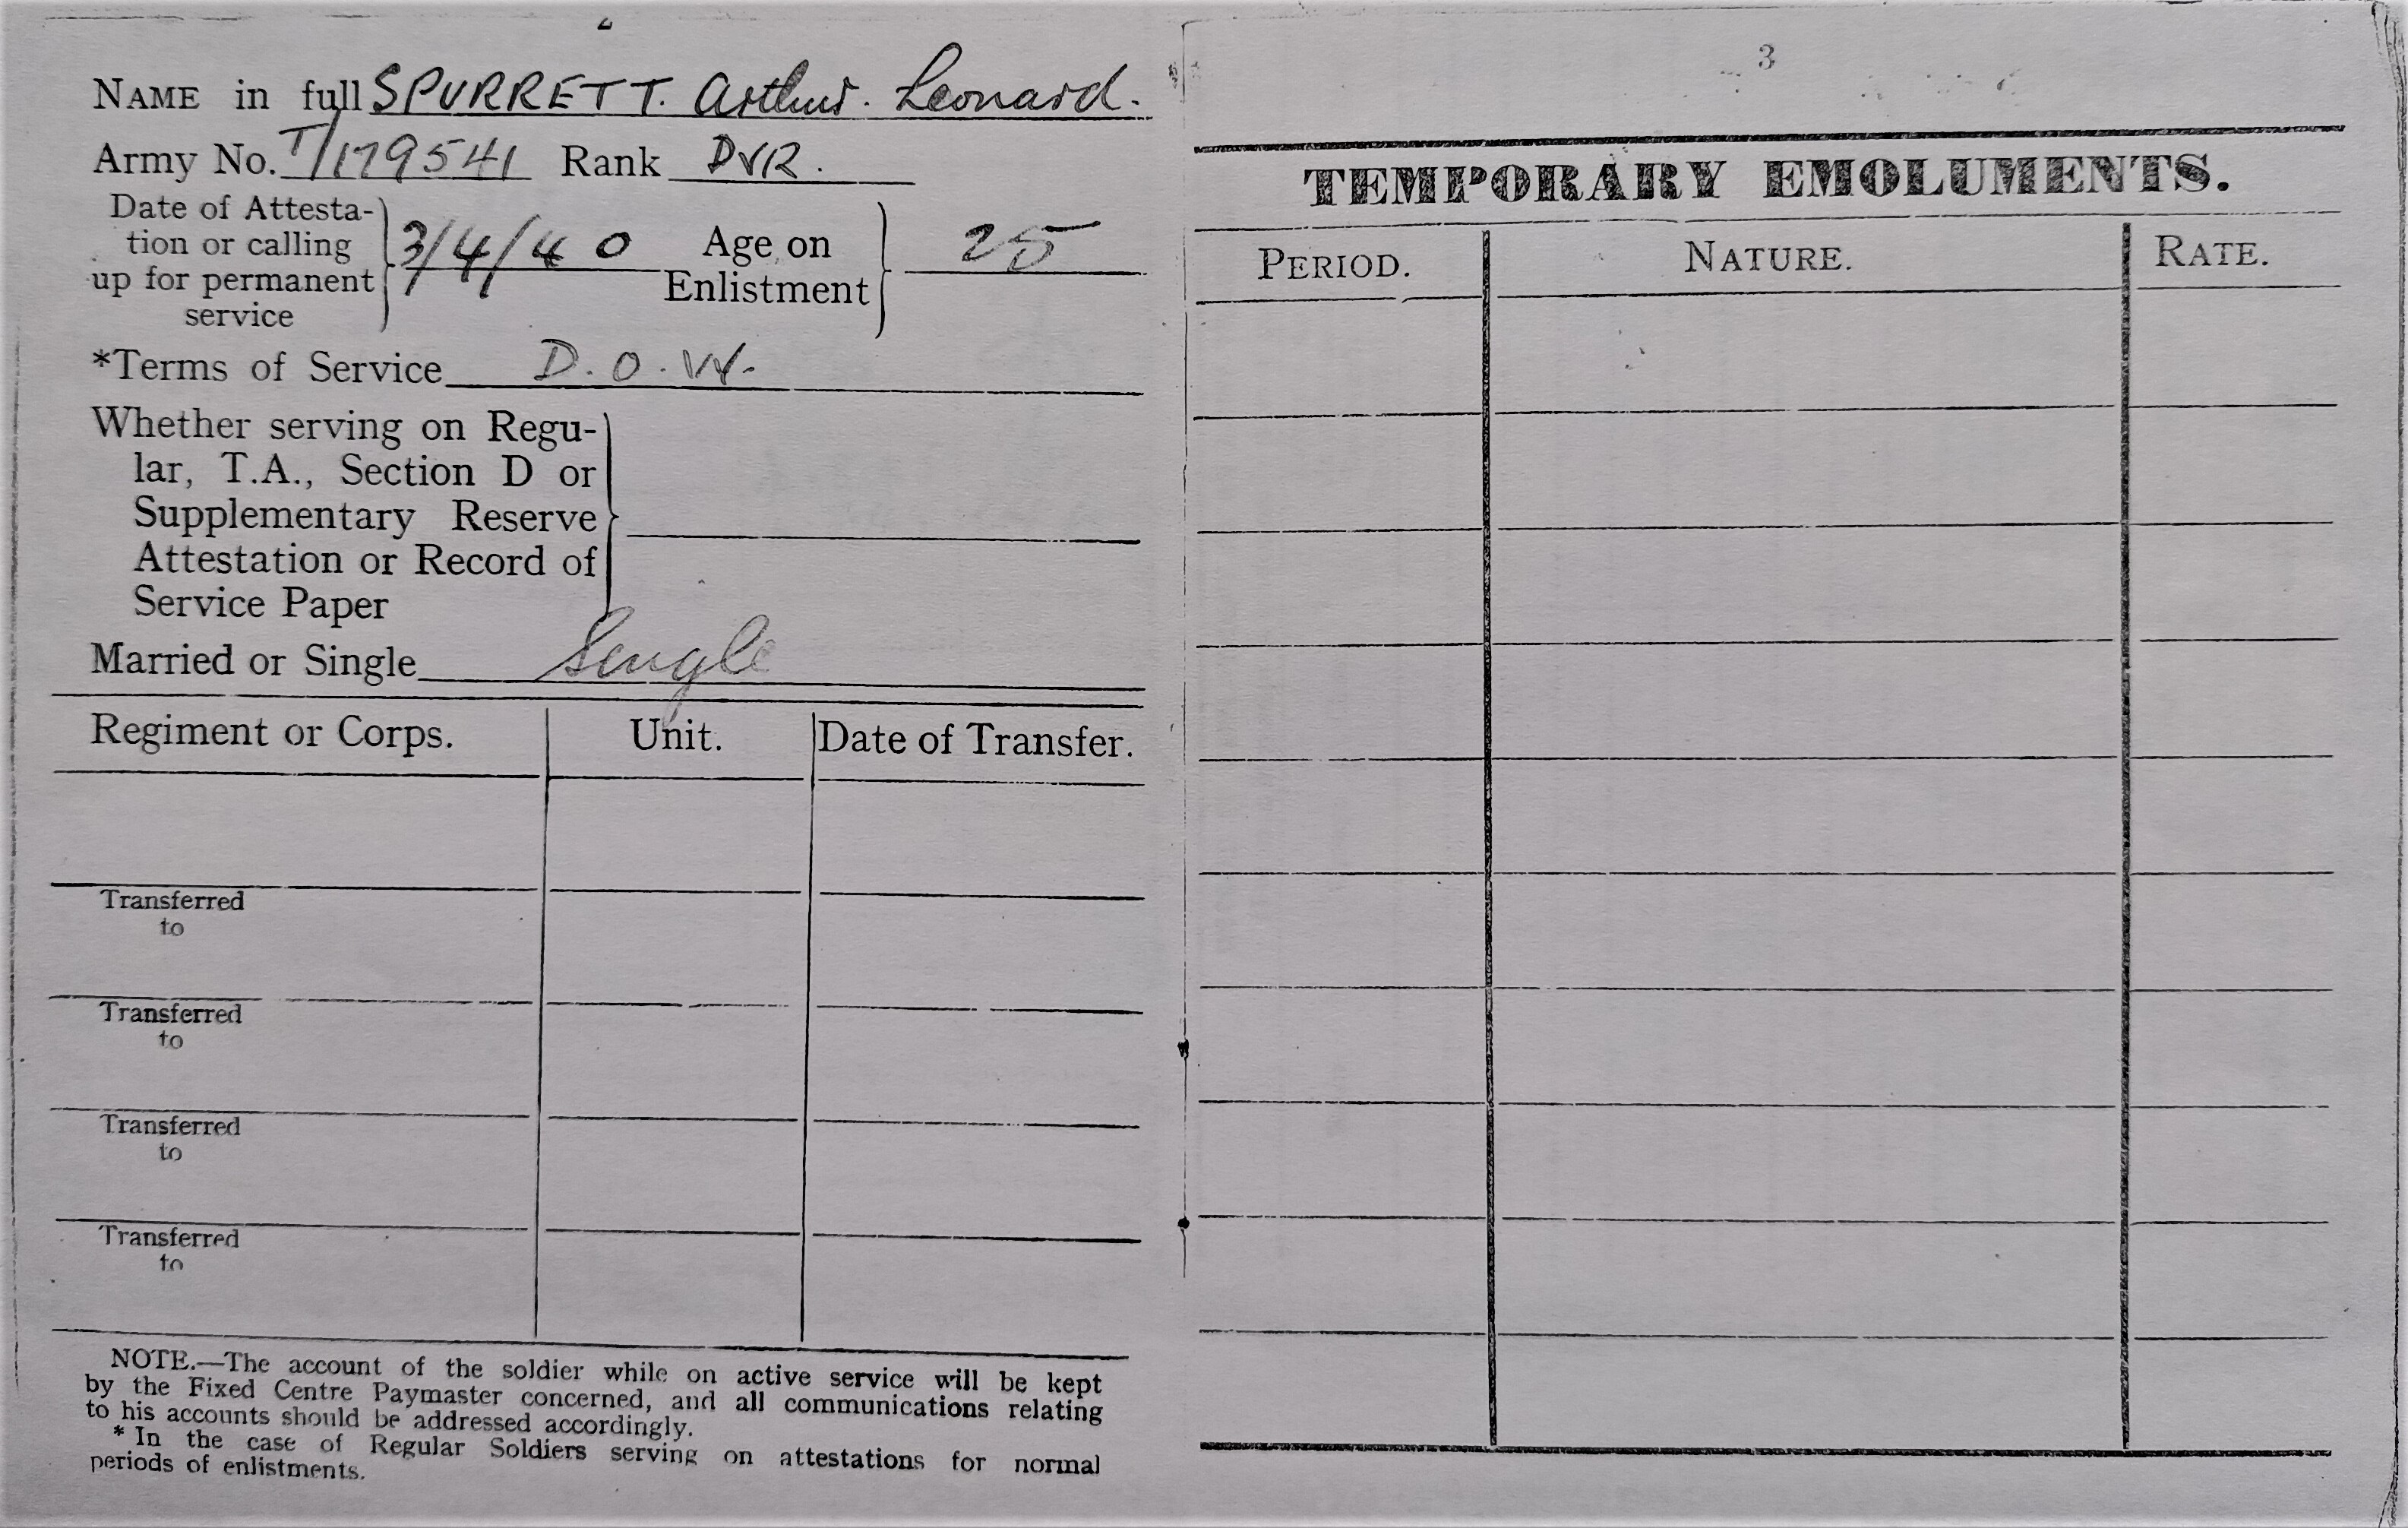 2
NAME in full SPURRETT. Arthur. Leonard.
Army No. T/179541 Rank DVR.
Date of Attesta-
tion or calling
up for permanent
service
3/4/40
Age on
Enlistment
25
*Terms of Service D.O.W.
Whether serving on Regu-
lar, T.A., Section D or
Supplementary Reserve
Attestation or Record of
Service Paper
Married or Single Single
Regiment or Corps. Unit. Date of Transfer.
Transferred
to
Transferred
to
Transferred
to
Transferred
to
NOTE.—The account of the soldier while on active service will be kept
by the Fixed Centre Paymaster concerned, and all communications relating
to his accounts should be addressed accordingly.
* In the case of Regular Soldiers serving on attestations for normal
periods of enlistments.
3
TEMPORARY EMOLUMENTS.
PERIOD. NATURE. RATE.